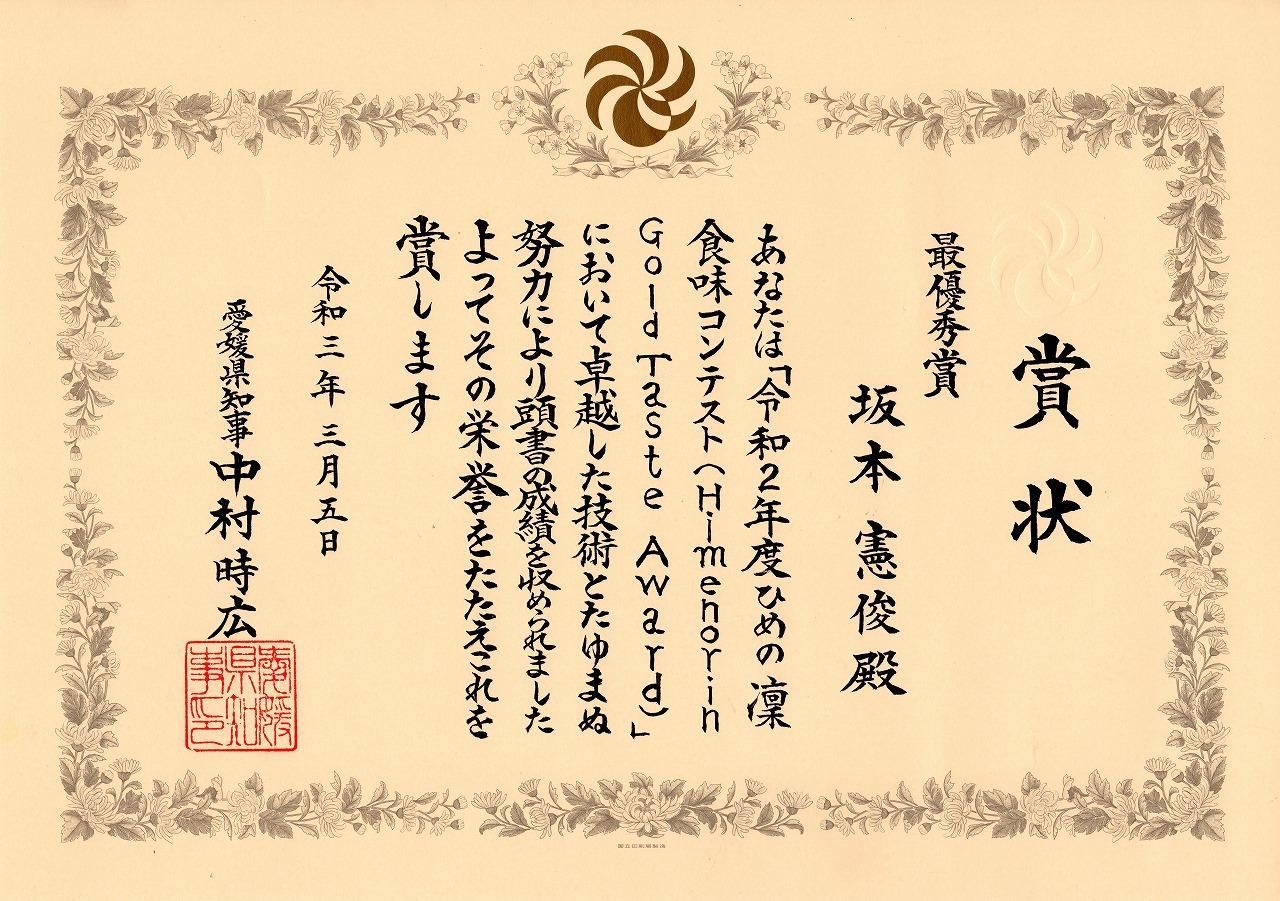 賞状
最優秀賞
坂本憲俊殿
あなたは「令和2年度ひめの凜
食味コンテスト(Himenorin
Gold Taste Award)」
において卓越した技術とたゆまぬ
努力により頭書の成績を収められました
よってその栄誉をたたえこれを
賞します
令和三年三月五日
愛媛県知事 中村時広
愛媛県知事印
国立印刷局製造